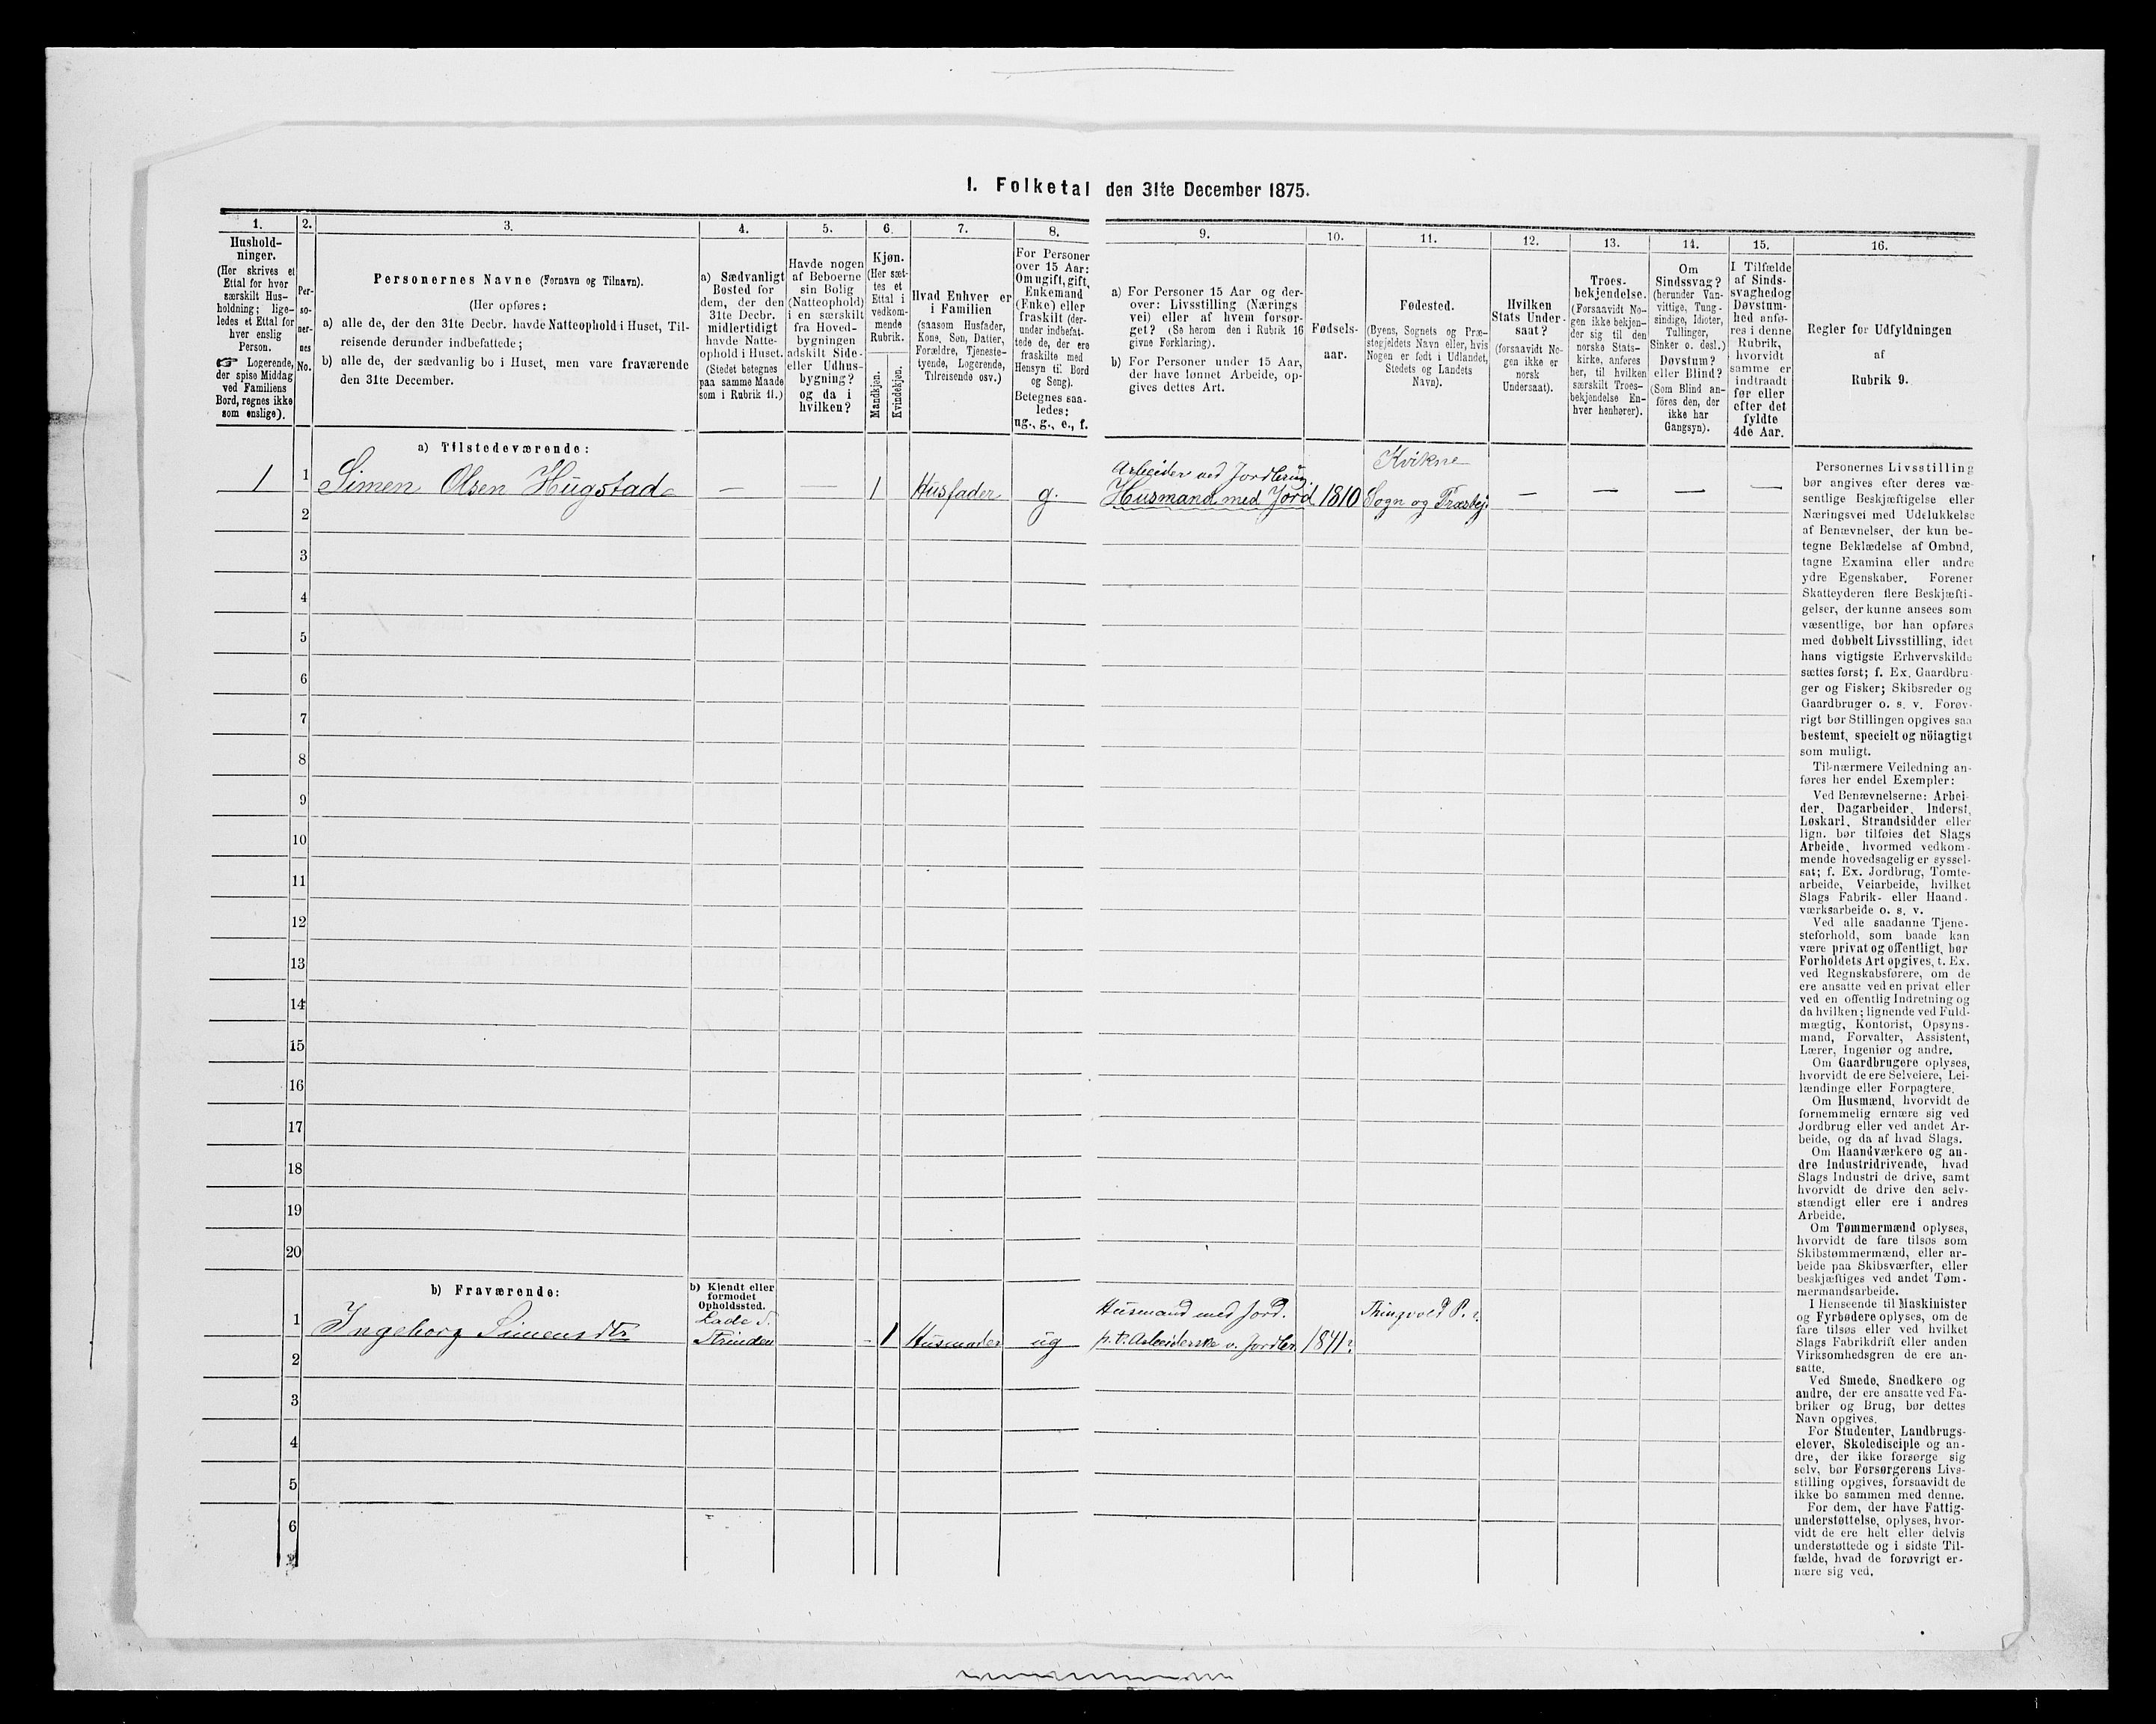 I. Folketal den 31te December 1875.
1.
Hushold-
ninger.
(Her skrives et
Ettal for hver
særskilt Hus-
holdning; lige-
ledes et Ettal for
hver enslig
Person.
☞ Logerende,
der spise Middag
ved Familiens
Bord, regnes ikke
som enslige).
2.
Per-
so-
ner-
nes
No.
3.
Personernes Navne (Fornavn og Tilnavn).
(Her opføres:
a) alle de, der den 31te Decbr. havde Natteophold i Huset, Til-
reisende derunder indbefattede;
b) alle de, der sædvanlig bo i Huset, men vare fraværende
den 31te December.
4.
a) Sædvanligt
Bosted for
dem, der den
31te Decbr.
midlertidigt
havde Natte-
ophold i Huset.
(Stedet betegnes
paa samme Maade
som i Rubrik 11.)
5.
Havde nogen
af Beboerne
sin Bolig
(Natteophold)
i en særskilt
fra Hoved-
bygningen
adskilt Side-
eller Udhus-
bygning?
og da i
hvilken?
6.
Kjøn.
(Her sæt-
tes et
Ettal i
vedkom-
mende
Rubrik.
Mandkjøn.
Kvindekjøn.
7.
Hvad Enhver er
i Familien
(saasom Husfader,
Kone, Søn, Datter,
Forældre, Tjeneste-
tyende, Logerende,
Tilreisende osv.)
8.
For Personer
over 15 Aar:
Om ugift, gift,
Enkemand
(Enke) eller
fraskilt (der-
under indbefat-
tede de, der ere
fraskilte med
Hensyn til Bord
og Seng).
Betegnes saa-
ledes:
ug., g., e., f.
9.
a) For Personer 15 Aar og der-
over: Livsstilling (Nærings
vei) eller af hvem forsør-
get? (Se herom den i Rubrik 16
givne Forklaring).
b) For Personer under 15 Aar,
der have lønnet Arbeide, op-
gives dettes Art.
10.
Fødsels-
aar.
11.
Fødested.
(Byens, Sognets og Præ-
stegjeldets Navn eller, hvis
Nogen er født i Udlandet,
Stedets og Landets
Navn).
12.
Hvilken
Stats Under-
saat?
(forsaavidt No-
gen ikke er
norsk
Undersaat).
13.
Troes-
bekjendelse.
(Forsaavidt No-
gen ikke bekjen-
der sig til den
norske Stats-
kirke, anføres
her, til hvilken
særskilt Troes-
bekjendelse En-
hver henhører).
14.
Om
Sindssvag?
(herunder Van-
vittige, Tung-
sindige, Idioter,
Tullinger,
Sinker o. desl.)
Døvstum?
eller Blind?
(Som Blind an-
føres den, der
ikke har
Gangsyn).
15.
I Tilfælde
af Sinds-
svaghed og
Døvstum-
hed anfø-
res i denne
Rubrik,
hvorvidt
samme er
indtraadt
før eller
efter det
fyldte
4de Aar.
16.
Regler for Udfyldningen
af
Rubrik 9.
a) Tilstedeværende:
1 1 Simen Olsen Hugstad — — 1 Husfader g. Arbeider ved Jordbrug.
Husmand med Jord 1810 Kvikne
Sogn og Præstegj. — — — —
2
3
4
5
6
7
8
9
10
11
12
13
14
15
16
17
18
19
20
b) Fraværende:
b) Kjendt eller
formodet
Opholdssted.
1 Ingeborg Simensdtr Lade S.
Strinden - 1 Husmoder ug Husmand med Jord.
Arbeiderske v. Jordbr. 1841? Thingvold P. ?
2
3
4
5
6
Personernes Livsstilling
bør angives efter deres væ-
sentlige Beskjæftigelse eller
Næringsvei med Udelukkelse
af Benævnelser, der kun be-
tegne Beklædelse af Ombud,
tagne Examina eller andre
ydre Egenskaber. Forener
Skatteyderen flere Beskjæfti-
gelser, der kunne ansees som
væsentlige, bør han opføres
med dobbelt Livsstilling, idet
hans vigtigste Erhvervskilde
sættes først; f. Ex. Gaardbru-
ger og Fisker; Skibsreder og
Gaardbruger o. s. v. Forøv-
rigt bør Stillingen opgives saa
bestemt, specielt og nöiagtigt
som muligt.
Til nærmere Veiledning an-
føres her endel Exempler:
Ved Benævnelserne: Arbei-
der, Dagarbeider, Inderst,
Løskarl, Strandsidder eller
lign. bør tilføies det Slags
Arbeide, hvormed vedkom-
mende hovedsagelig er syssel-
sat; f. Ex. Jordbrug, Tomte-
arbeide, Veiarbeide, hvilket
Slags Fabrik- eller Haand-
værksarbeide o. s. v.
Ved alle saadanne Tjene-
steforhold, som baade kan
være privat og offentligt, bør
Forholdets Art opgives, t. Ex.
ved Regnskabsførere, om de
ere ansatte ved en privat eller
ved en offentlig Indretning og
da hvilken; lignende ved Fuld-
mægtig, Kontorist, Opsyns-
mand, Forvalter, Assistent,
Lærer, Ingeniør og andre.
Om Gaardbrugere oplyses,
hvorvidt de ere Selveiere, Lei-
lændinge eller Forpagtere.
Om Husmænd, hvorvidt de
fornemmelig ernære sig ved
Jordbrug eller ved andet Ar-
beide, og da af hvad Slags.
Om Haandværkere og an-
dre Industridrivende, hvad
Slags Industri de drive, samt
hvorvidt de drive den selv-
stændigt eller ere i andres
Arbeide.
Om Tømmermænd oplyses,
hvorvidt de fare tilsøs som
Skibstømmermænd, eller ar-
beide paa Skibsværfter, eller
beskjæftiges ved andet Tøm-
mermandsarbeide.
I Henseende til Maskinister
og Fyrbødere oplyses, om de
fare tilsøs eller ved hvilket
Slags Fabrikdrift eller anden
Virksomhedsgren de ere an-
satte.
Ved Smede, Snedkere og
andre, der ere ansatte ved Fa-
briker og Brug, bør dettes
Navn opgives.
For Studenter, Landbrugs-
elever, Skoledisciple og an-
dre, der ikke forsørge sig
selv, bør Forsørgerens Livs-
stilling opgives, forsaavidt de
ikke bo sammen med denne.
For dem, der have Fattig-
understøttelse, oplyses, hvor-
vidt de ere helt eller delvis
understøttede og i sidste Til-
fælde, hvad de forøvrigt er-
nære sig ved.